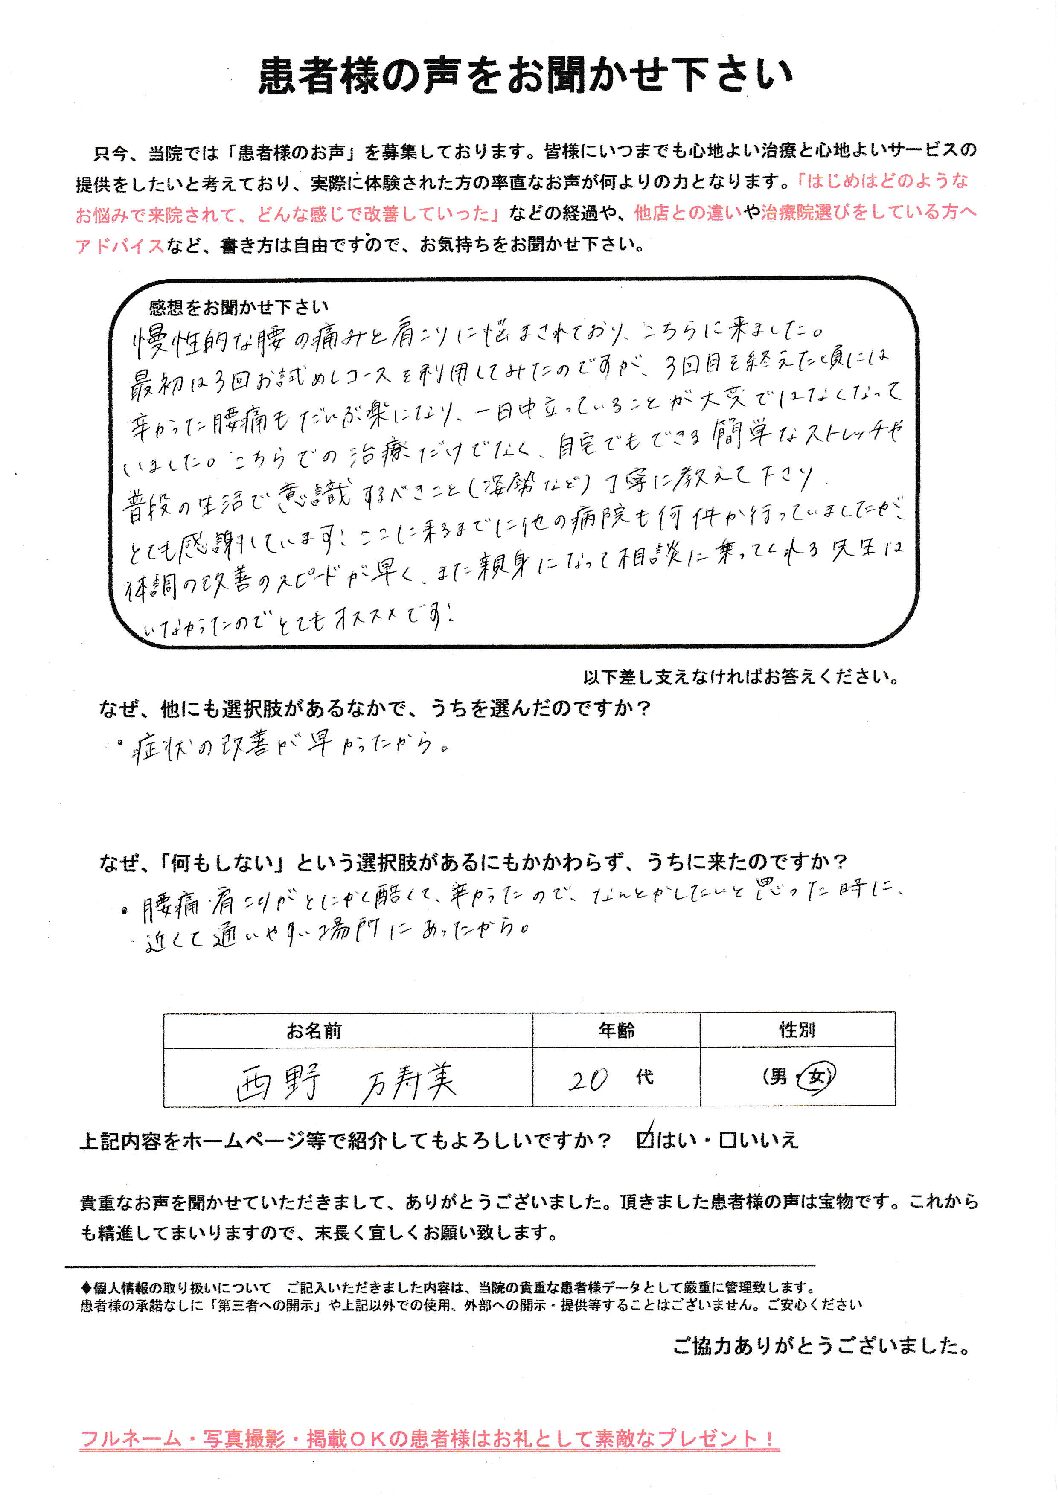 患者様の声をお聞かせ下さい
只今、当院では「患者様のお声」を募集しております。皆様にいつまでも心地よい治療と心地よいサービスの
提供をしたいと考えており、実際に体験された方の率直なお声が何よりの力となります。「はじめはどのような
お悩みで来院されて、どんな感じで改善していった」などの経過や、他店との違いや治療院選びをしている方へ
アドバイスなど、書き方は自由ですので、お気持ちをお聞かせ下さい。
感想をお聞かせ下さい
慢性的な腰の痛みと肩こりに悩まされており、こちらに来ました。
最初は3回お試めしコースを利用してみたのですが、3回目を終えた頃には
辛かった腰痛もだいぶ楽になり、一日中立っていることが大変ではなくなって
いました。こちらでの治療だけでなく、自宅でもできる簡単なストレッチや
普段の生活で意識するべきこと(姿勢など)丁寧に教えて下さり、
とても感謝しています!ここに来るまでに他の病院も何件か行っていましたが、
体調の改善のスピードが早く、また親身になって相談に乗ってくれる先生は
いなかったのでとてもオススメです!
以下差し支えなければお答えください。
なぜ、他にも選択肢があるなかで、うちを選んだのですか?
・症状の改善が早かったから。
なぜ、「何もしない」という選択肢があるにもかかわらず、うちに来たのですか?
・腰痛・肩こりがとにかく酷くて、辛かったので、なんとかしたいと思った時に、
近くて通いやすい場所にあったから。
お名前 年齢 性別
西野 万寿美 20 代 (男・女)
上記内容をホームページ等で紹介してもよろしいですか? ☑はい・□いいえ
貴重なお声を聞かせていただきまして、ありがとうございました。頂きました患者様の声は宝物です。これから
も精進してまいりますので、末長く宜しくお願い致します。
◆個人情報の取り扱いについて ご記入いただきました内容は、当院の貴重な患者様データとして厳重に管理致します。
患者様の承諾なしに「第三者への開示」や上記以外での使用、外部への開示・提供等することはございません。ご安心ください
ご協力ありがとうございました。
フルネーム・写真撮影・掲載OKの患者様はお礼として素敵なプレゼント!